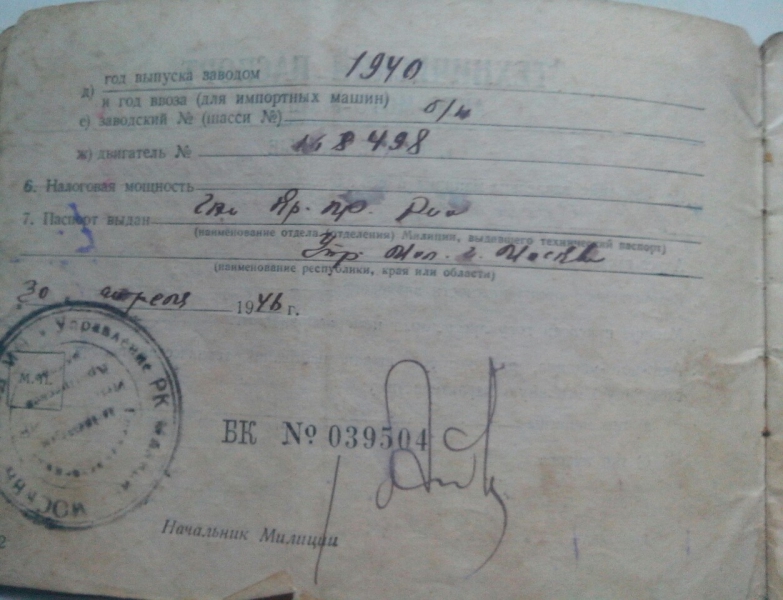 д) год выпуска заводом 1940
и год ввоза (для импортных машин)
е) заводский № (шасси №) б/н
ж) двигатель №
6. Налоговая мощность
7. Паспорт выдан
(наименование отдела (отделения) Милиции, выдавшего технический паспорт)
Упр. Мил. г. Москвы
(наименование республики, края или области)
30 апреля 1946 г.
Управление РК
М.П.
БК № 039504
Начальник Милиции
2